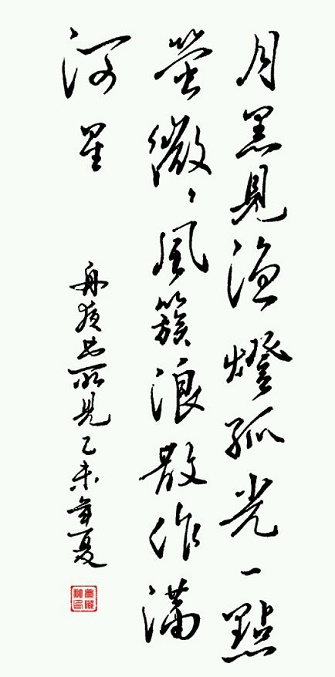 月黑見漁燈孤光一點
螢微々風簇浪散作滿
河星
舟夜書所見乙未年夏